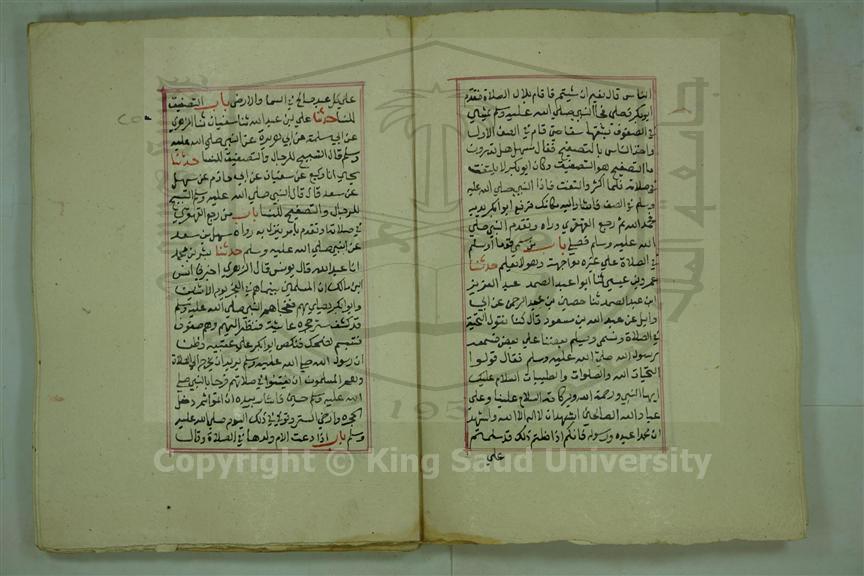 الناس قال نعم ان شيتم فاقام بلال الصلاة فتقدم
ابو بكر فصلى فجا النبي صلى الله عليه وسلم يمشي
في الصفوف يشقها شقا حتى قام في الصف الاول
واخذ الناس بالتصفيح فقال سهل هل تدرون
ما التصفيح هو التصفيق وكان ابو بكر لا يلتفت
في صلاته فلما اكثروا التفت فاذا النبي صلى الله عليه
وسلم في الصف فاشار اليه مكانك فرفع ابو بكر يديه
فحمد الله ثم رجع القهقرى وراه وتقدم النبي صلى
الله عليه وسلم فصلى باب من سمى قوما او سلم
في الصلاة على غيره مواجهة وهو لا يعلم حدثنا
عمرو بن عيسى ثنا ابو عبد الصمد عبد العزيز
ابن عبد الصمد ثنا حصين بن عبد الرحمن عن ابي
وايل عن عبد الله بن مسعود قال كنا نقول التحية
في الصلاة ونسمي ويسلم بعضنا على بعض فسمعه
رسول الله صلى الله عليه وسلم فقال قولوا
التحيات لله والصلوات والطيبات السلام عليك
ايها النبي ورحمة الله وبركاته السلام علينا وعلى
عباد الله الصالحين اشهد ان لا اله الا الله واشهد
ان محمدا عبده ورسوله فانكم اذا فعلتم ذلك فقد سلمتم
على
على كل عبد صالح في السما والارض باب التصفيق
للنسا حدثنا علي بن عبد الله ثنا سفيان ثنا الزهري
عن ابي سلمة عن ابي هريرة عن النبي صلى الله عليه
وسلم قال التسبيح للرجال والتصفيق للنسا حدثنا
يحيى انا وكيع عن سفيان عن ابي حازم عن سهل
بن سعد قال قال النبي صلى الله عليه وسلم التسبيح
للرجال والتصفيح للنسا باب من رجع القهقرى
في صلاته او تقدم بامر ينزل به رواه سهل بن سعد
عن النبي صلى الله عليه وسلم حدثنا بشر بن محمد
انا عبد الله قال يونس قال الزهري اخبرني انس
ابن مالك ان المسلمين بينما هم في الفجر يوم الاثنين
وابو بكر يصلي بهم ففجاهم النبي صلى الله عليه وسلم
قد كشف ستر حجرة عايشة فنظر اليهم وهم صفوف
فتبسم يضحك فنكص ابو بكر على عقبيه وظن
ان رسول الله صلى الله عليه وسلم يريد ان يخرج الى الصلاة
وهم المسلمون ان يفتتنوا في صلاتهم فرحا بالنبي صلى
الله عليه وسلم حين فاشار بيده ان اتموا ثم دخل
الحجرة وارخى الستر وتوفي في ذلك اليوم صلى الله عليه
وسلم باب اذا دعت الام ولدها في الصلاة وقال
جامعة الملك سعود
1957
Copyright © King Saud University